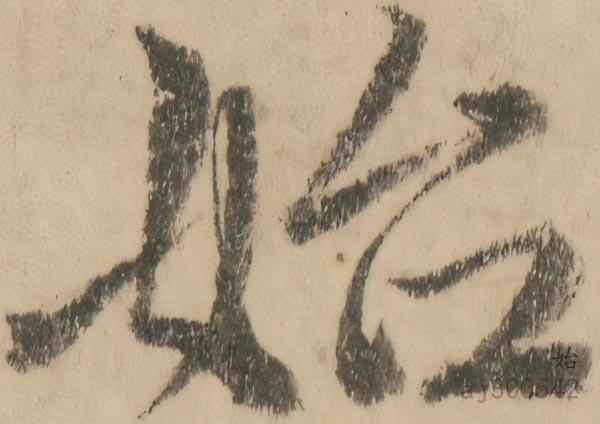 始
始
aj300542